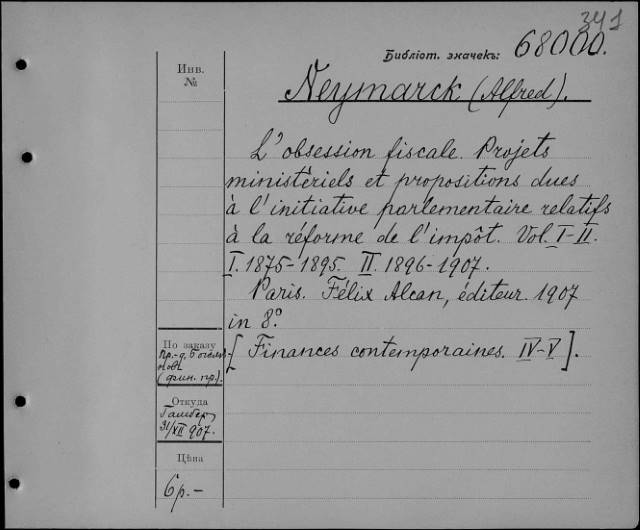 341
Библіот. значекъ: 68000.
Инв.
№
Neymarck (Alfred).
L'obsession fiscale. Projets
ministériels et propositions dues
à l'initiative parlementaire relatifs
à la réforme de l'impôt. Vol. I-II.
I. 1875-1895. II. 1896-1907.
Paris. Félix Alcan, éditeur. 1907
in 8º
[Finances contemporaines. IV-V].
По заказу
пр.-д.
(фин. пр.).
Откуда
31/XII 907.
Цѣна
6 р.-